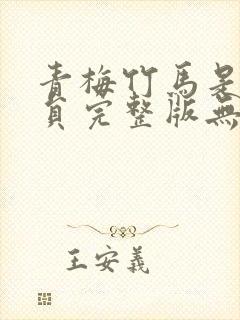 青梅竹馬是
頁完整版無
王安義